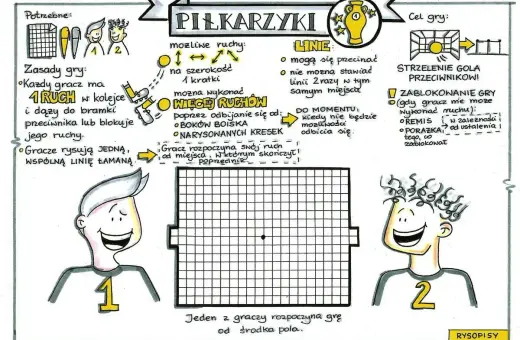 PIŁKARZYKI
1
Potrzebne:
1 2
Zasady gry:
Każdy gracz ma
1 RUCH w kolejce
i dąży do bramki
przeciwnika lub blokuje
jego ruchy.
Gracze rysują JEDNĄ,
WSPÓLNĄ LINIĘ ŁAMANĄ.
możliwe ruchy:
na szerokość
1 kratki
można wykonać
WIĘCEJ RUCHÓW
poprzez odbijanie się od:
BOKÓW BOISKA
NARYSOWANYCH KRESEK
Gracz rozpoczyna swój ruch
od miejsca, w którym skończył
poprzednik
LINIE:
mogą się przecinać
nie można stawiać
linii 2 razy w tym
samym miejscu
DO MOMENTU:
kiedy nie będzie
możliwości
odbicia się
Cel gry:
STRZELENIE GOLA
PRZECIWNIKOWI
! ZABLOKOWANIE GRY
(gdy gracz nie może
wykonać ruchu):
REMIS
PORAŻKA
tego, co
zablokował
w zależności
od ustalenia
1
2
Jeden z graczy rozpoczyna grę
od środka pola.
RYSOPISY